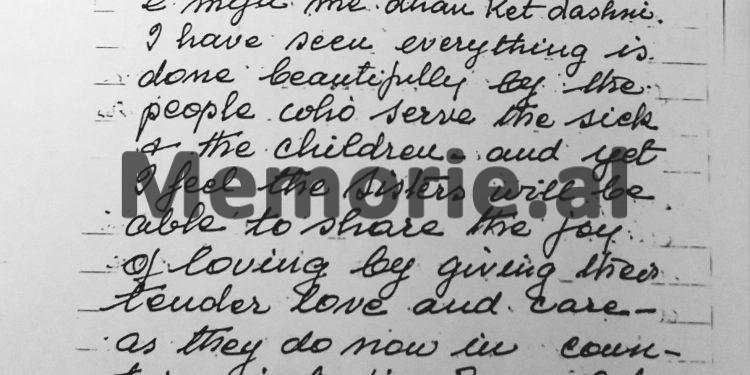 e mgu me dhan Ket dashni.
I have seen everything is
done beautifully by the
people who serve the sick
& the children - and yet
I feel the sisters will be
able to share the joy
of loving by giving their
tender love and care -
as they do now in coun-
Memorie.al